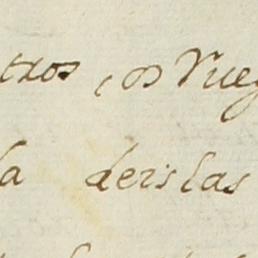 tros, os Rueg
la deis las